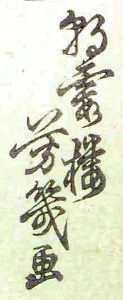 朝霞樓
芳幾画